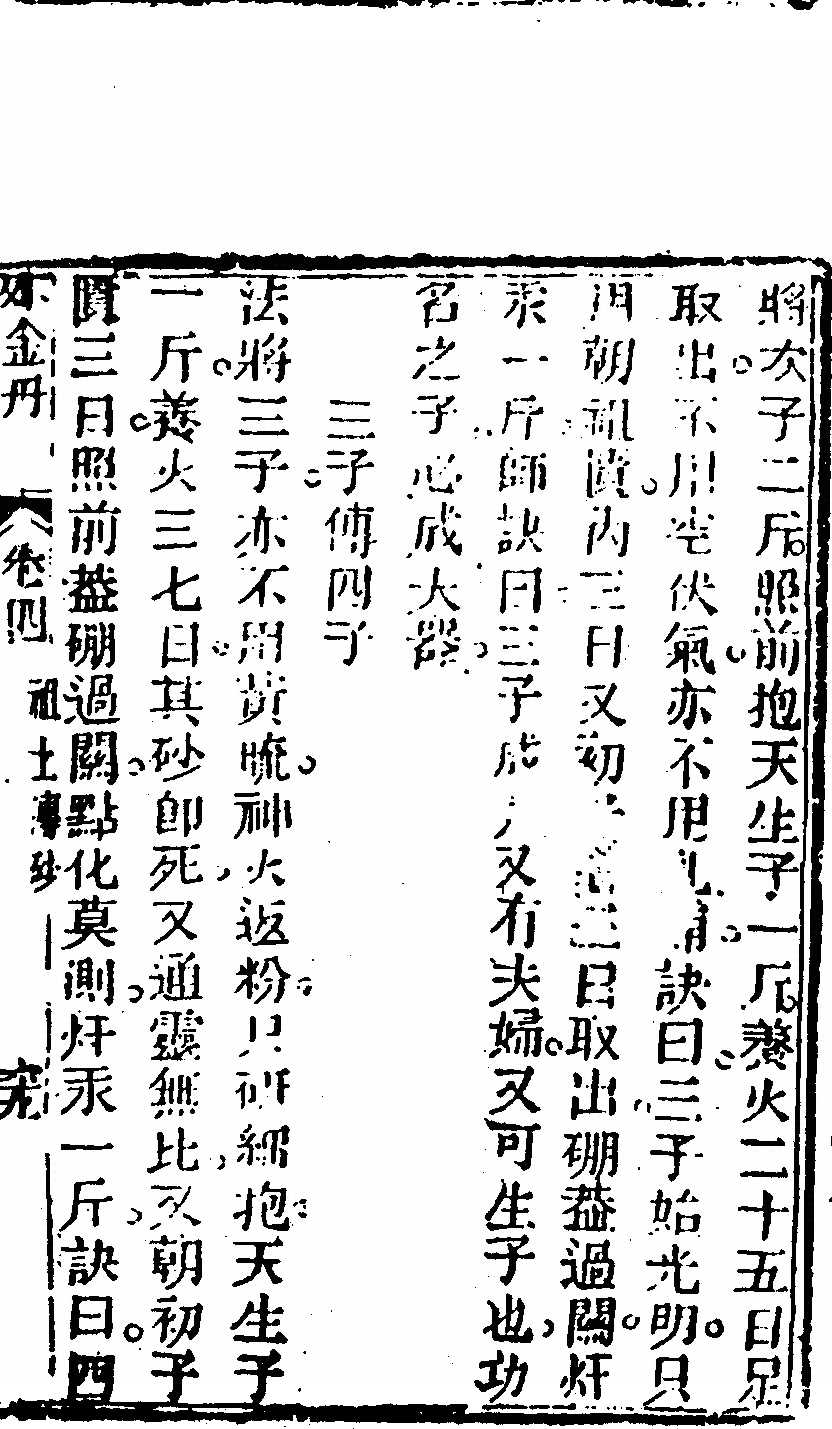 將次子二斤照前抱天生子一斤養火二十五日足
取出不用空伏氣亦不用 訣曰三子始光明只
朝祖匱內三日又初 三日取出硼葢過關煿
汞一斤師訣曰三子成 又有夫婦又可生子也功
名之子必成大器
三子傳四子
法將三子亦不用黃 神火返粉只研細抱天生子
一斤養火三七日其砂卽死又通靈無比又朝初子
匱三日照前葢硼過關點化莫測煿汞一斤訣曰四
金丹 卷四 祖土傳砂